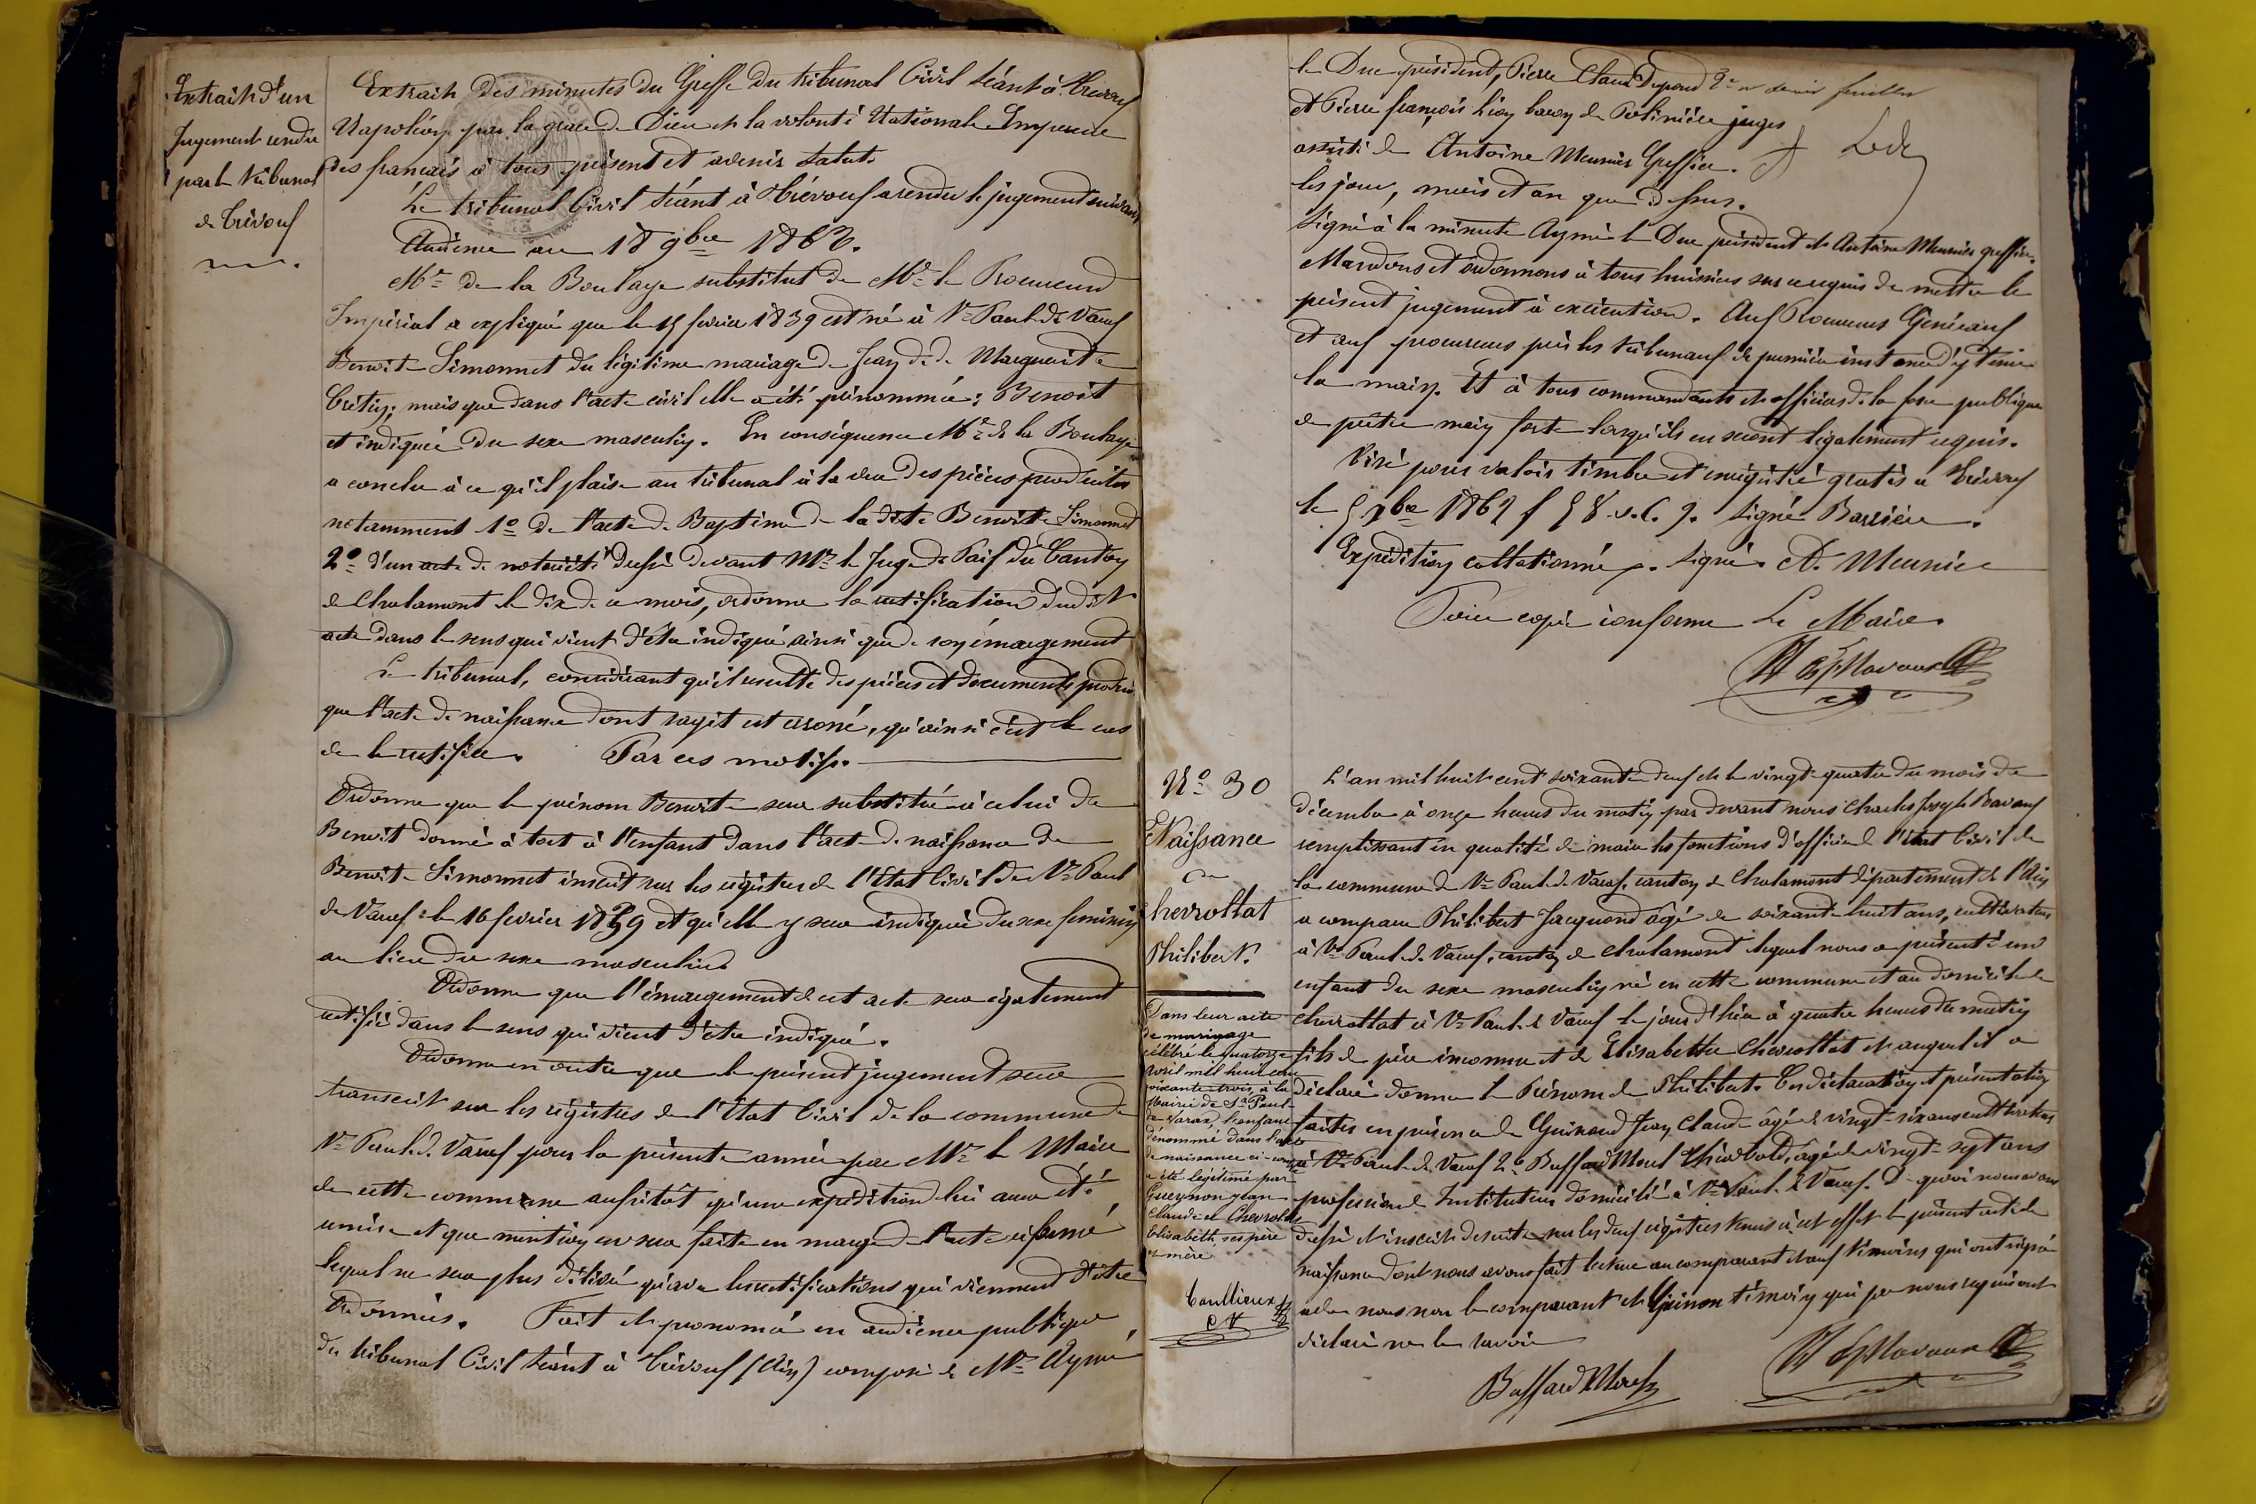 Extrait d'un
Jugement rendu
par le tribunal
de Trévoux
Extrait des minutes du Greffe du tribunal Civil séant à Trevoux
Napoléon par la grace de Dieu et la volonté Nationale Empereur
des français à tous présent et avenir Salut.
Le tribunal Civil séant à Trévoux a rendu le jugement suivant
Audience du 18 9bre 1862.
Mr de la Boulaye substitut de Mr le Procureur
Impérial a expliqué que le 15 fevrier 1839 est né à St Paul de Varax
Benoite Simonnet du légitime mariage de Jean et de Marguerite
Crétin; mais que dans l'acte civil elle a été prénommée: Benoit
et indiquée du sexe masculin. En conséquence Mr de la Boulaye
a conclu à ce qu'il plaise au tribunal à la vue des pièces produites
notamment 1º de l'acte de Baptême de la dite Benoite Simonnet
2º d'un acte de notoriété dressé devant Mr le Juge de Paix du Canton
de Chalamont le dix de ce mois, ordonner la rectification dudit
acte dans le sens qui vient d'être indiqué ainsi que de son émargement
Le tribunal, considérant qu'il résulte des pièces et documents produits
que l'acte de naissance dont s'agit est erroné, qu'ainsi c'est le cas
de le rectifier. Par ces motifs.
Ordonne que le prénom Benoite sera substitué à celui de
Benoit donné à tort à l'enfant dans l'acte de naissance de
Benoite Simonnet inscrit sur les registres de l'Etat Civil de St Paul
de Varax le 16 fevrier 1839 et qu'elle y sera indiquée du sexe feminin
au lieu du sexe masculin
Ordonne que l'émargement de cet acte sera également
rectifié dans le sens qui vient d'être indiqué.
Ordonne en outre que le présent jugement sera
transcrit sur les registres de l'Etat Civil de la commune de
St Paul de Varax pour la présente année par Mr le Maire
de cette commune aussitôt qu'une expédition lui aura été
remise et que mention en sera faite en marge de l'acte réformé
lequel ne sera plus délivré qu'avec les rectifications qui viennent d'être
Ordonnées. Fait et prononcé en audience publique
du tribunal Civil séant à Trévoux (Ain) composé de Mr Aymé
le Duc président, Pierre Claude Dupond 3e et dernier feuillet
et Pierre françois Léon baron de Polinière juges
assisté de Antoine Meunier Greffier.
les jour, mois et an que dessus.
Signé à la minute Aymé le Duc président et Antoine Meunier greffier.
Mandons et ordonnons à tous huissiers sur ce requis de mettre le
présent jugement à exécution. Aux Procureurs Généraux
et aux procureurs près les tribunaux de première instance d'y tenir
la main. Et à tous commandants et officiers de la force publique
de prêter main forte lorsqu'ils en seront légalement requis.
Visé pour valoir timbre et enregistré gratis a Trévoux
le 5 xbre 1862 f 58 v. C. 9. Signé Barrière.
Expédition collationnée. Signé. A. Meunier
Pour copie conforme Le Maire.
Nº 30
Naissance
de
Chevrottat
Philibert.
Dans leur acte
de mariage
célébré le quatorze
avril mil huit cent
soixante-trois, à la
Mairie de St Paul
de Varax, l'enfant
dénommé dans l'acte
de naissance ci-contre
a été légitimé par
Gueynon Jean
Claude et Chevrottat
Elisabeth ses père
et mère
L'an mil huit cent soixante deux et le vingt-quatre du mois de
décembre à onze heures du matin par devant nous Charles Joseph Bavoux
remplissant en qualité de maire les fonctions d'officier de l'état Civil de
la commune de St Paul de Varax, canton de Chalamont département de l'Ain
a comparu Philibert Jacquand âgé de soixante huit ans, cultivateur
à St Paul de Varax, canton de Chalamont lequel nous a présenté un
enfant du sexe masculin né en cette commune et au domicile de
Chevrottat à St Paul de Varax le jour d'hier à quatre heures du matin
fils de père inconnu et de Elisabethe Chevrottat et auquel il a
déclaré donner le Prénom de Philibert. Ces déclaration et présentation
faites en présence de Guinand Jean Claude âgé de vingt-six ans cultivateur
à St Paul de Varax 2º Buffard Morel Théodbald, âgé de vingt-sept ans
profession de Instituteur domicilié à St Paul de Varax. De quoi nous avons
dressé et inscrit de suite sur les deux registres tenus à cet effet le présent acte de
naissance dont nous avons fait lecture au comparant et aux témoins qui ont signé
avec nous non le comparant et Guinon témoin qui de nous requis ont
déclaré ne le savoir
Buffard Morel